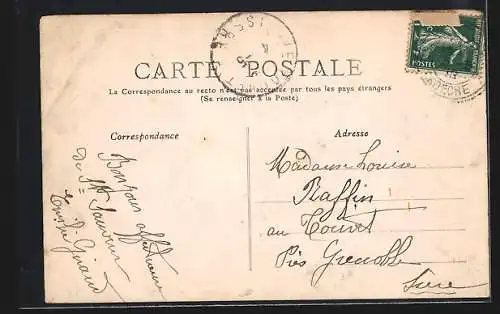 CARTE POSTALE
La Correspondance au recto n'est pas acceptée par tous les pays étrangers
(Se renseigner à la Poste)
Correspondance
Adresse
Bonjour affectueux
de St Sauveur
Giraud
Madame Louise
Raffin
au Touvet
Près Grenoble
Isère
POSTES
ISÈRE
ARDÈCHE